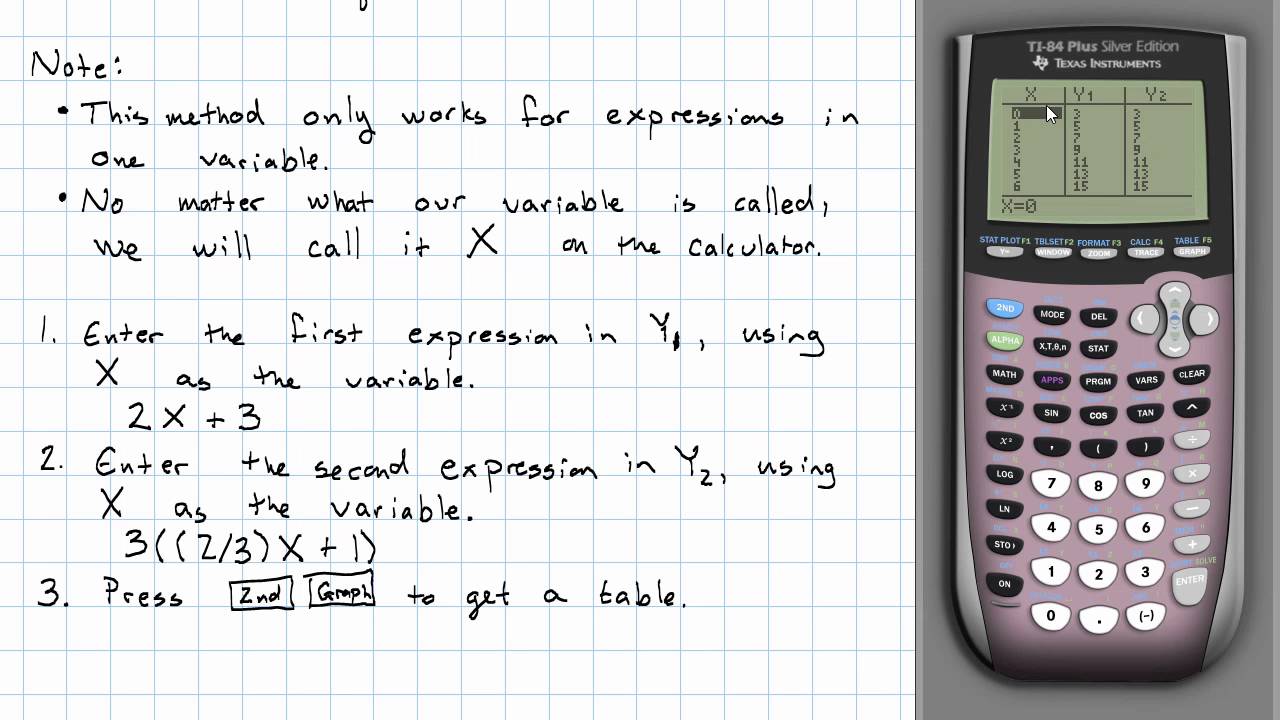 Note:
• This method only works for expressions in
one variable.
• No matter what our variable is called,
we will call it X on the calculator.
1. Enter the first expression in Y1, using
X as the variable.
2X + 3
2. Enter the second expression in Y2, using
X as the variable.
3((2/3)X + 1)
3. Press 2nd Graph to get a table.
TI-84 Plus Silver Edition
TEXAS INSTRUMENTS
X Y1 Y2
0 3 3
1 5 5
2 7 7
3 9 9
4 11 11
5 13 13
6 15 15
X=0
STAT PLOT F1 TBLSET F2 FORMAT F3 CALC F4 TABLE F5
Y= WINDOW ZOOM TRACE GRAPH
2ND MODE DEL
ALPHA X,T,θ,n STAT
MATH APPS PRGM VARS CLEAR
x⁻¹ SIN COS TAN ^
x² , ( ) ÷
LOG 7 8 9 ×
LN 4 5 6 −
STO› 1 2 3 +
ON 0 . (−) ENTER